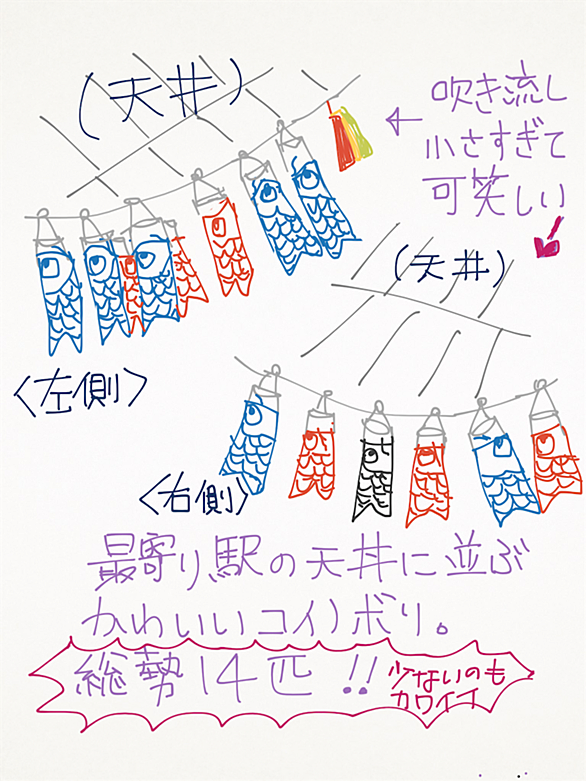 (天井)
吹き流し
小さすぎて
可笑しい
(天井)
<左側>
<右側>
最寄り駅の天井に並ぶ
かわいいコイノボリ。
総勢14匹!!
少ないのも
カワイイ